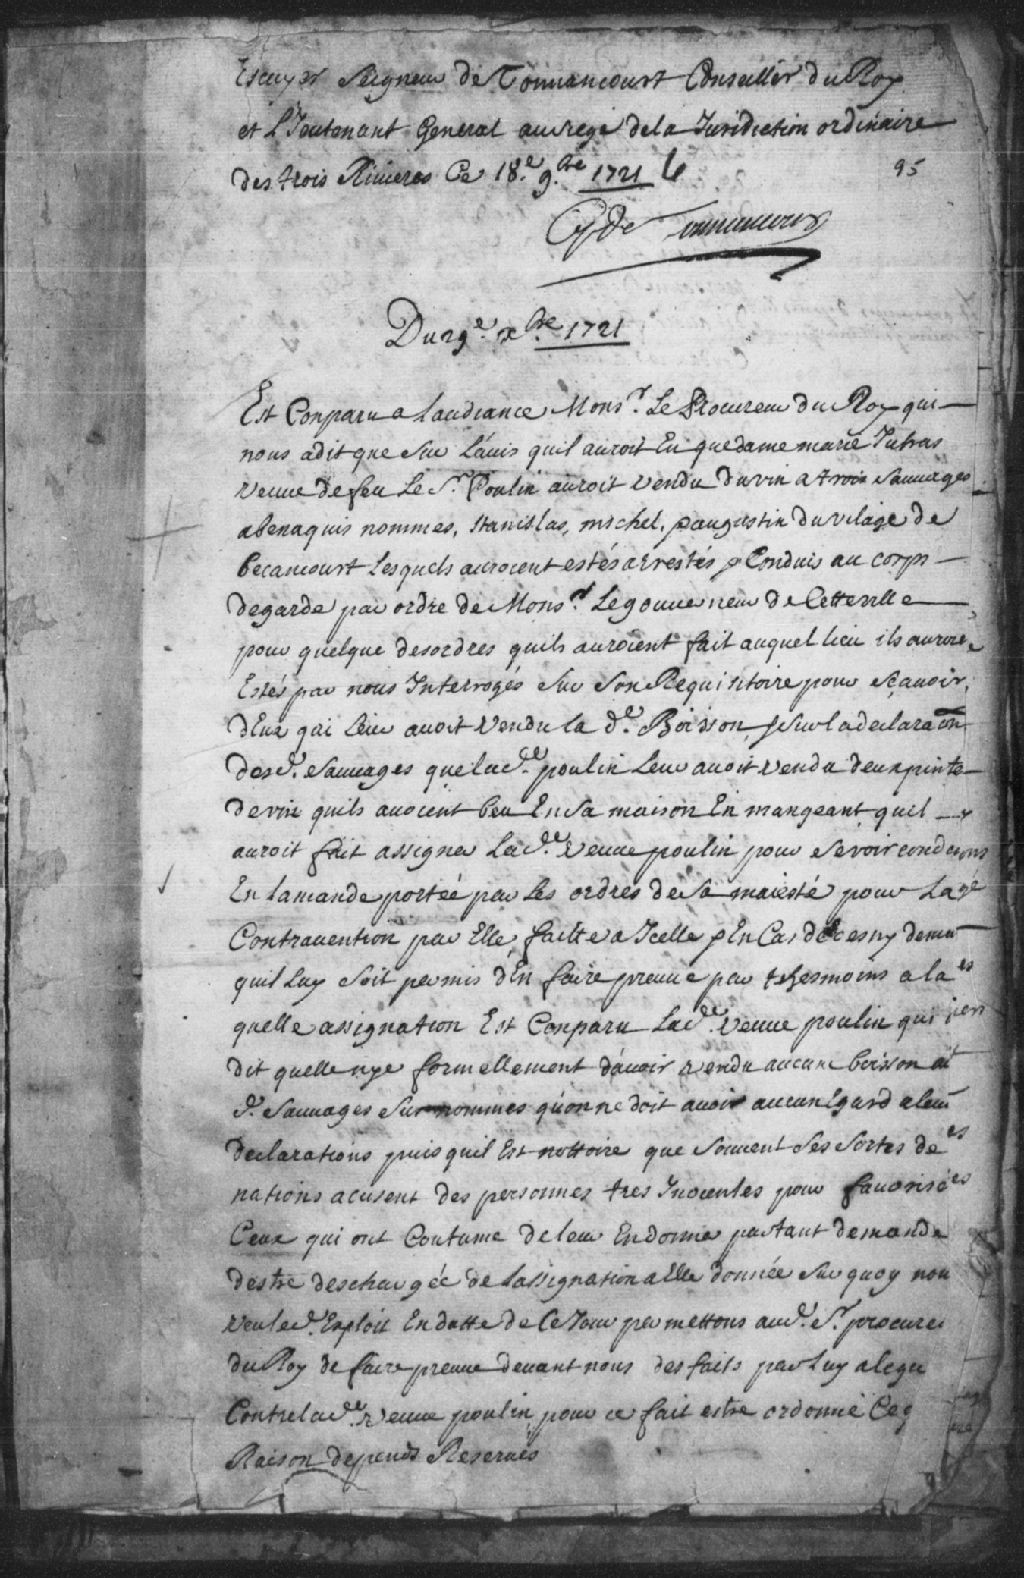 Escuyer Seigneur de Tonnancourt Conseiller du Roy
et L'Ieutenant General au siege de la Juridiction ordinaire
des trois Rivieres Ce 18.e 9.bre 1721
95
G de Tonnancour
Du 29.e x.bre 1721
Est Conparu a Laudiance Mons.r Le Procureur du Roy qui
nous a dit que sur L'auis quil auroit Eu que dame marie Jutras
veuve de feu Le S.r Poulin auroit vendu du vin a trois sauvages
abenaquis nommes, stanislas, michel, & augustin du vilage de
becancourt Lesquels auroient estés arrestés & Conduis au corps
degarde par ordre de Mons.r Le gouverneur de Cette ville
pour quelque desordres quils auroient fait auquel lieu ils auroie
Estés par nous Interrogés sur son Requisitoire pour sçavoir
dEux qui leur avoit vendu la d.e Boisson, & sur la declaraon
des d. sauvages que la d.e poulin leur avoit vendu deux pinte
de vin quils avoient beu En sa maison En mangeant quil
auroit fait assigner La d.e veuve poulin pour se voir condem
En lamande portée par les ordres de sa maiesté pour La
Contravention par Elle faitte a Icelle & En Cas de desny dema
quil Luy soit permis d'En faire preuve par thesmoins a la
quelle assignation Est Conparu La d.e veuve poulin qui
dit quelle nye formellement d'avoir vendu aucune boisson au
d. sauvages sur nommes quon ne doit avoir aucun Egard a leur
declarations puis quil Est nottoire que souvent ses sortes de
nations acusent des personnes tres Inocentes pour favorisé
Ceux qui ont Coutume de leur En donner partant demande
destre deschargée de lassignation a Elle donnée sur quoy nou
veu le d. Exploit En datte de Ce Jour permettons au d. S.r procure
du Roy de faire preuve devant nous des faits par Luy alegu
Contre la d.e veuve poulin pour ce fait estre ordonné Ce q
Raison depends Reservés